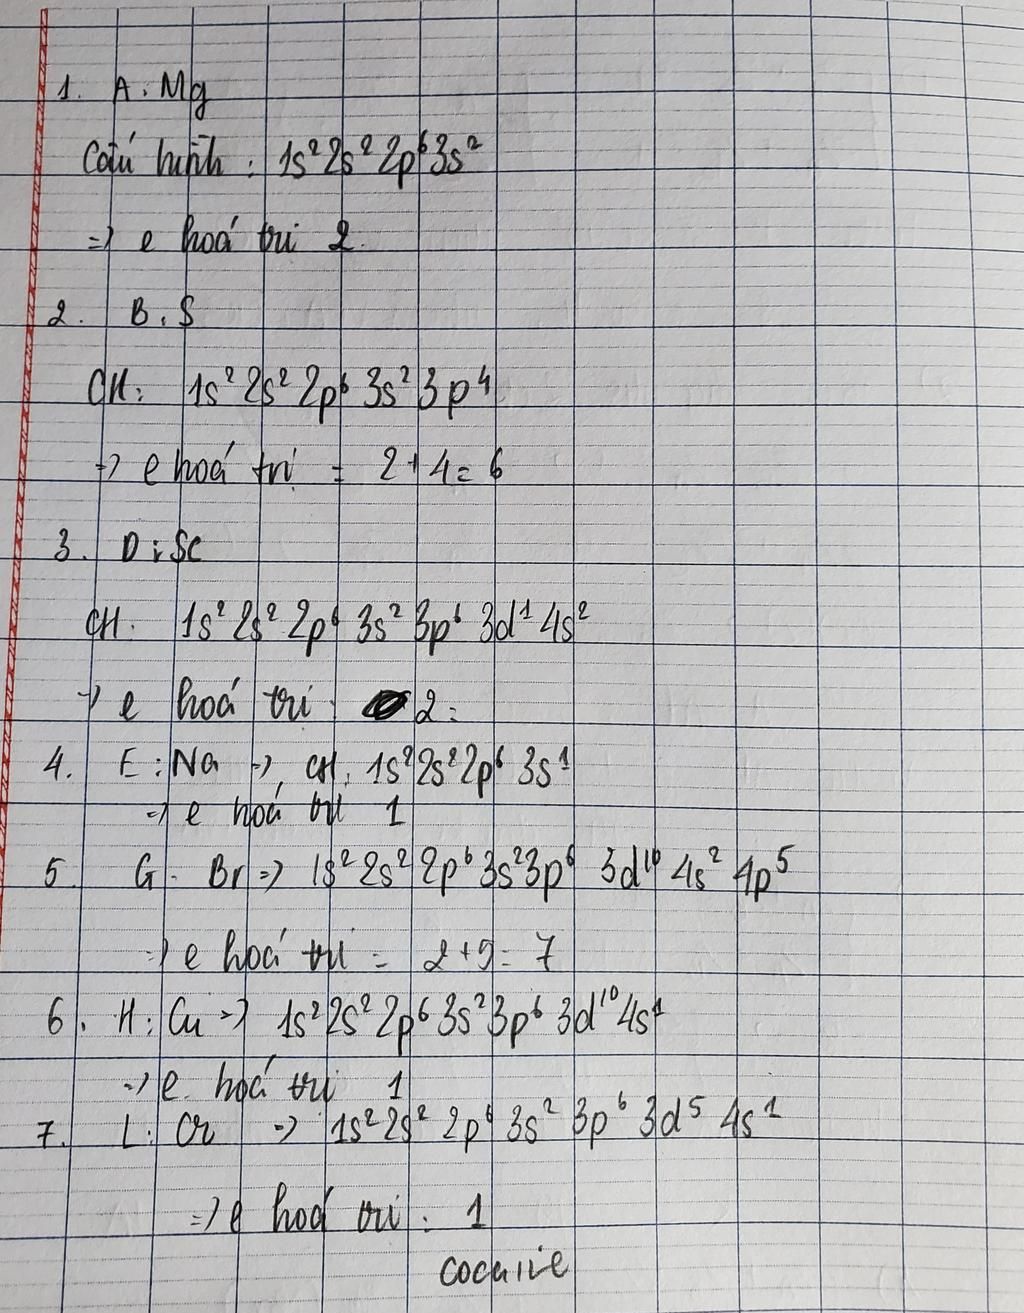 1. A. Mg
Cấu hình : 1s² 2s² 2p⁶ 3s²
=> e hoá trị 2.
2. B. S
CH: 1s² 2s² 2p⁶ 3s² 3p⁴
=> e hoá trị = 2+4=6
3. D: Sc
CH. 1s² 2s² 2p⁶ 3s² 3p⁶ 3d¹ 4s²
=> e hoá trị : 2:
4. E: Na => CH. 1s² 2s² 2p⁶ 3s¹
=> e hoá trị 1
5. G. Br => 1s² 2s² 2p⁶ 3s² 3p⁶ 3d¹⁰ 4s² 4p⁵
=> e hoá trị = 2+5= 7
6. H: Cu => 1s² 2s² 2p⁶ 3s² 3p⁶ 3d¹⁰ 4s¹
=> e hoá trị 1
7. L: Cr => 1s² 2s² 2p⁶ 3s² 3p⁶ 3d⁵ 4s¹
=> e hoá trị : 1